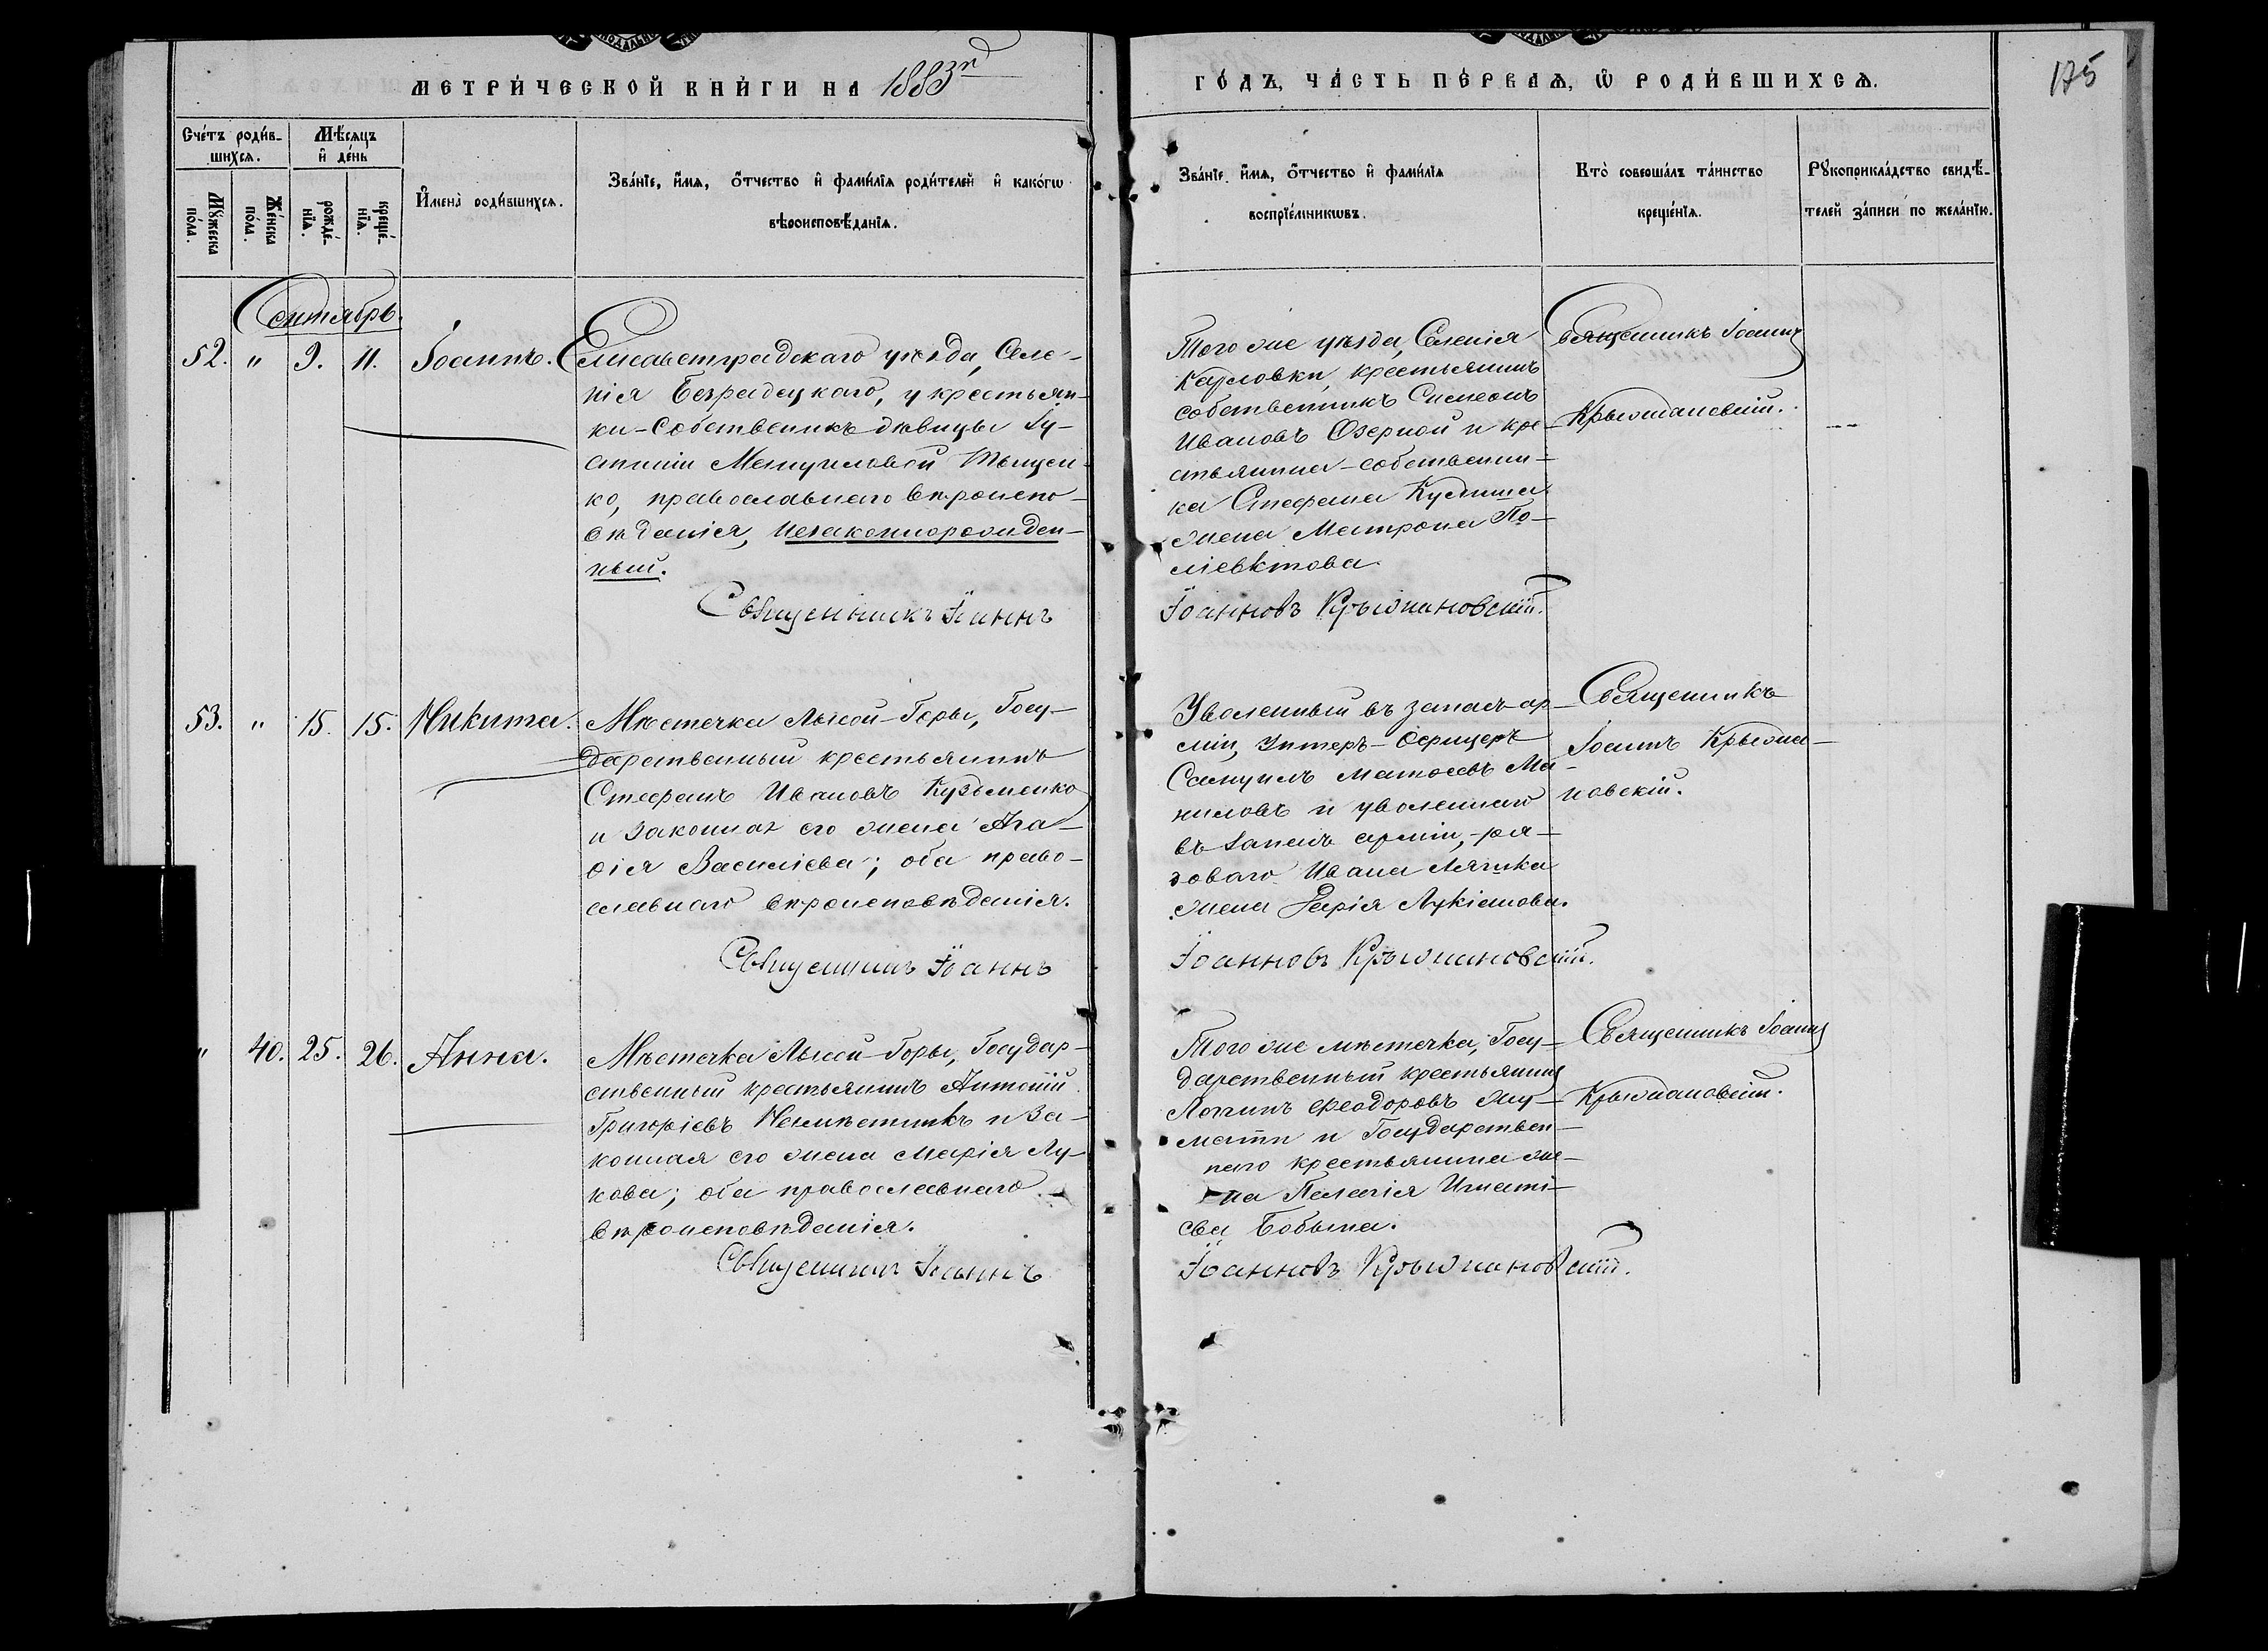 МЕТРИ́ЧЕСКОЙ КНИ́ГИ НА 1883й
ГО́ДЪ, ЧА́СТЬ ПЕ́РВАѦ, Ѿ РОДИ́ВШИХСѦ.
175
Счéтъ роди́в-
шихсѧ.
Мѣ́сѧцъ
и҆ дéнь
Мꙋ́жеска
по́ла.
Жéнска
по́ла.
рождé-
нїѧ.
крещé-
нїѧ.
И҆мена̀ роди́вшихсѧ.
Зва́нїе, и҆́мѧ, о҆́тчество и҆ фами́лїѧ роди́телей и҆ како́гѡ
вѣроисповѣ́данїѧ.
Зва́нїе, и҆́мѧ, о҆́тчество и҆ фами́лїѧ
воспрїéмникѡвъ.
Кто̀ соверша́лъ та́инство
крещéнїѧ.
Рꙋкоприкла́дство свидѣ́-
телей за́писи по жела́нїю.
Сентябрь.
52. " 9. 11. Іоаннъ.
Елисаветградскаго уѣзда, Селе-
нія Безрадецкаго, у крестьян-
ки-Собственникъ дѣвицы Іу-
стиніи Мануиловой Тыщен-
ко, православнаго вѣроиспо-
вѣданія, незаконнорожден-
ный.
Священникъ Іоаннъ
Того же уѣзда, Селенія
Карловки, крестьянинъ
собственникъ Симеонъ
Ивановъ Озерной и кре-
стьянина-собственни-
ка Стефана
жена Матрона По-
ліевктова.
Іоанновъ Крыжановскій.
Священникъ Іоаннъ
Крыжановскій.
53. " 15. 15. Никита.
Мѣстечка Лысой-Горы, Госу-
дарственный крестьянинъ
Стефанъ Ивановъ Кузьменко
и законная его жена Ага-
ѳія Василіева; оба право-
славнаго вѣроисповѣданія.
Священникъ Іоаннъ
Уволенный въ запасъ ар-
міи, Унтеръ-Офицеръ
Самуилъ Матѳеевъ Ма-
ниловъ и уволеннаго
въ запасъ арміи, ря-
доваго Ивана
жена Дарія Лукіанова.
Іоанновъ Крыжановскій.
Священникъ
Іоаннъ Крыжа-
новскій.
" 40. 25. 26. Анна.
Мѣстечка Лысой-Горы, Государ-
ственный крестьянинъ Антоній
Григоріевъ и За-
конная его жена Марія Лу-
кова; оба православнаго
вѣроисповѣданія.
Священникъ Іоаннъ
Того же мѣстечка, Госу-
дарственный крестьянинъ
Логинъ Ѳеодоровъ
и Государствен-
наго крестьянина же-
на Пелагія Игнаті-
ева
Іоанновъ Крыжановскій.
Священникъ Іоаннъ
Крыжановскій.